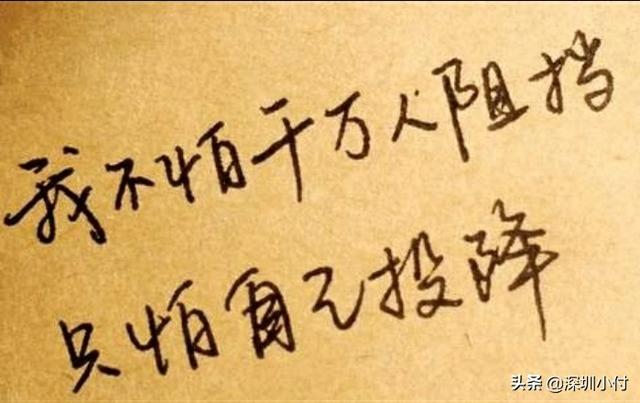 我不怕千万人阻挡
只怕自己投降
头条 @深圳小付